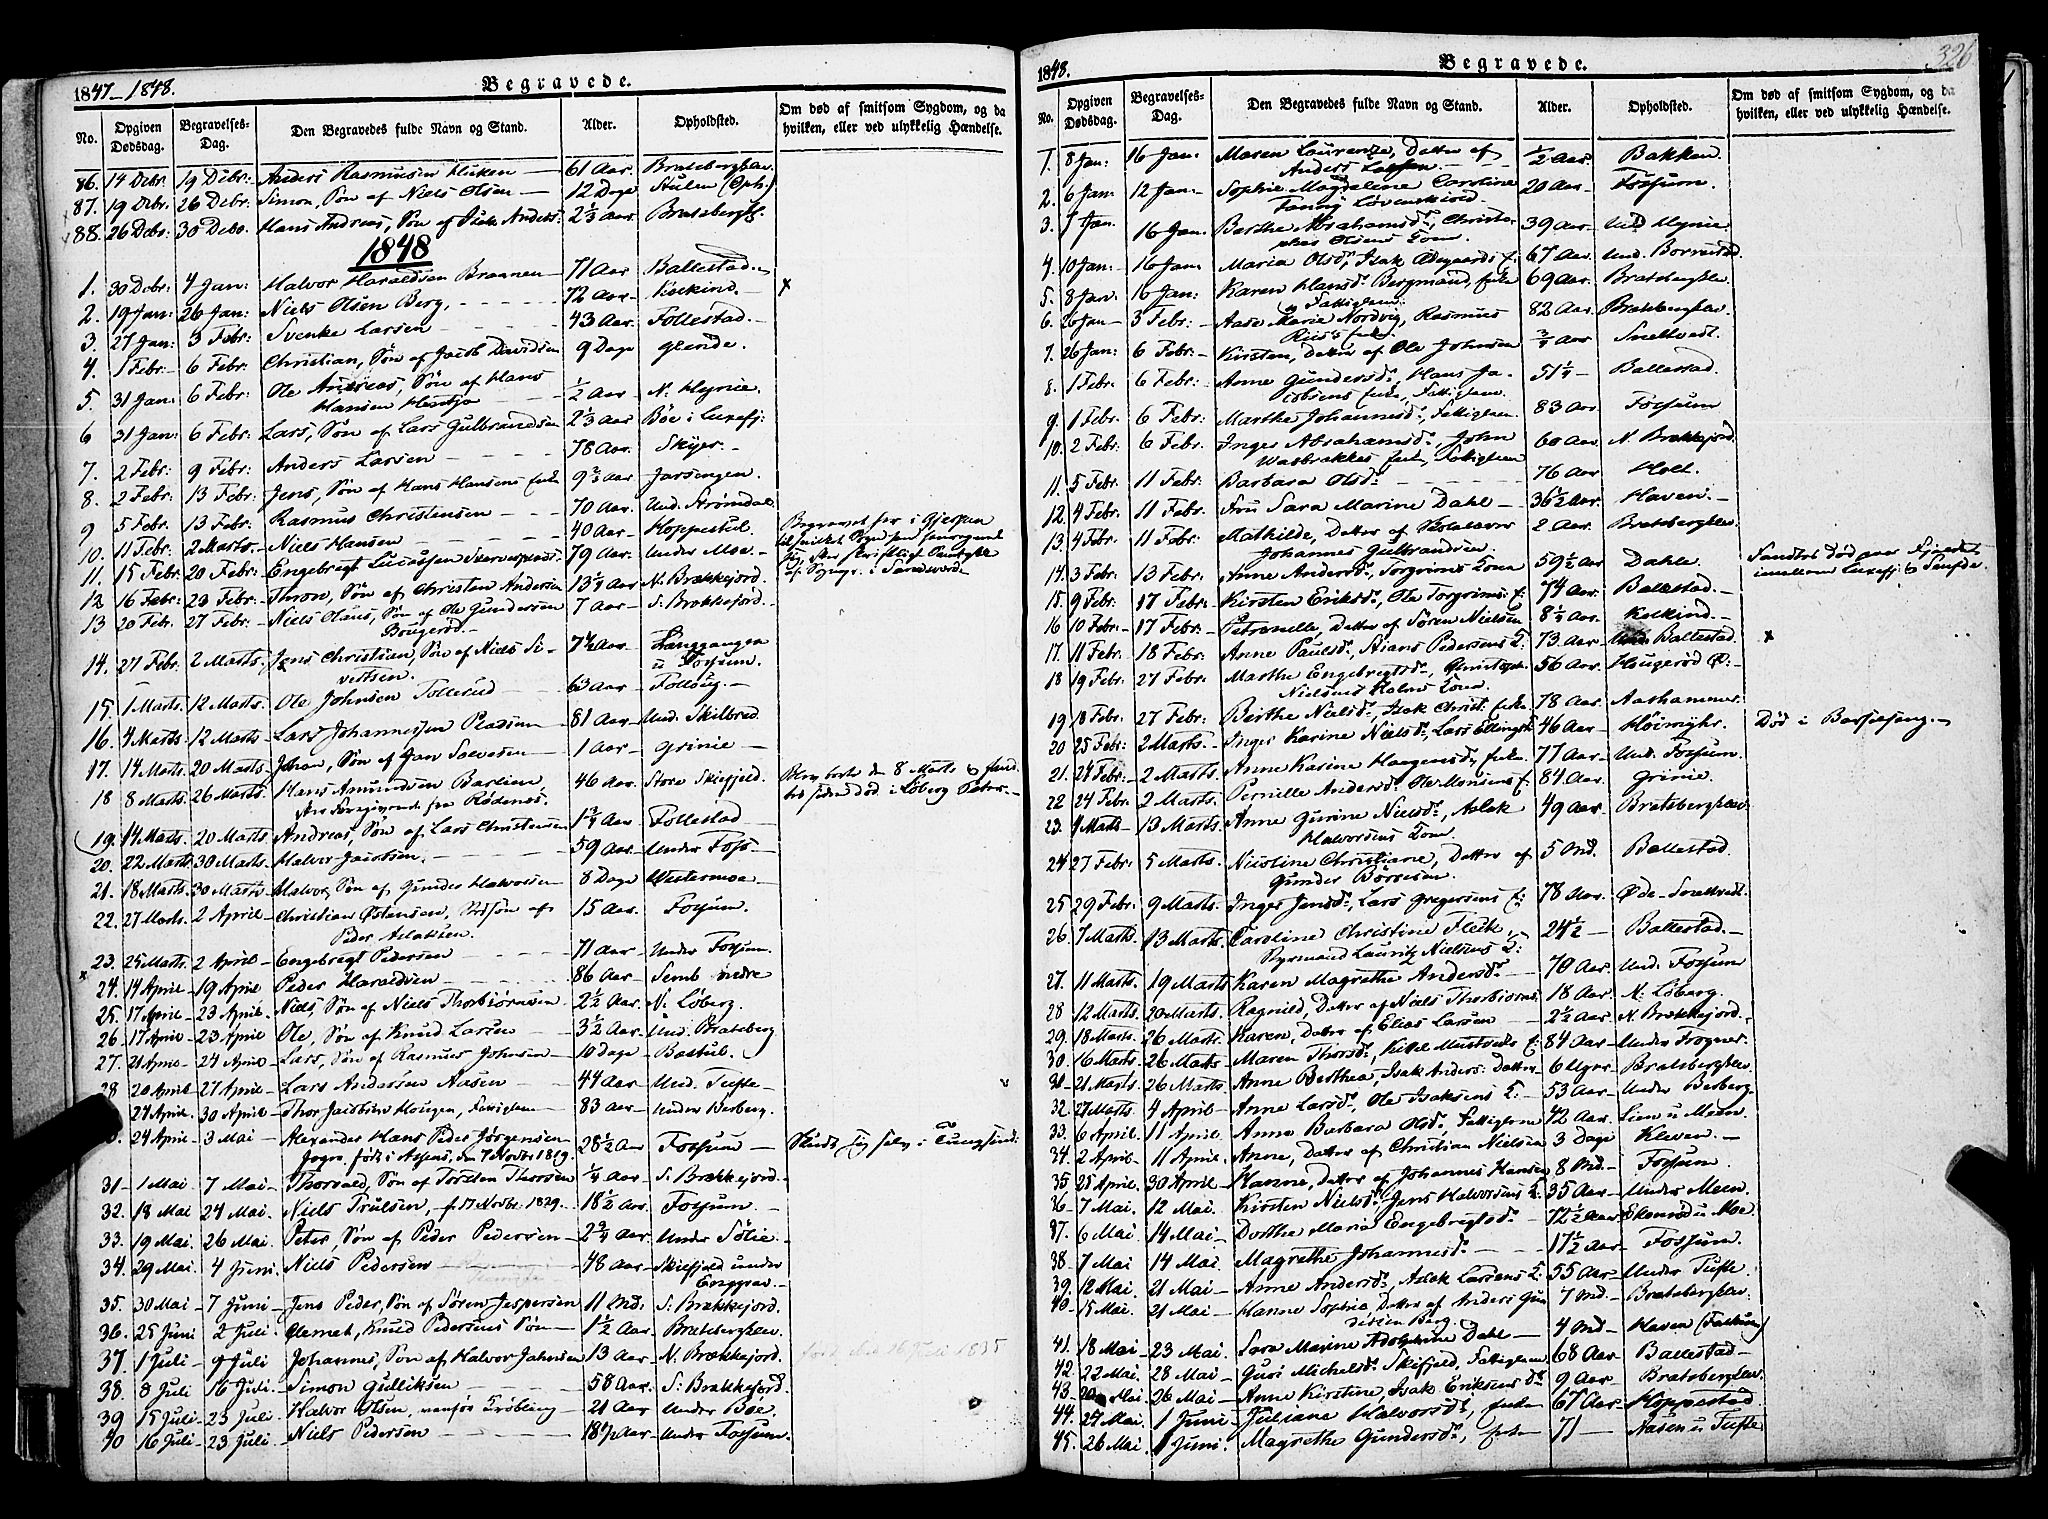 1847-1848. Begravede.
No. Opgiven Dødsdag. Begravelses-Dag. Den Begravedes fulde Navn og Stand. Alder. Opholdsted. Om død af smitsom Sygdom, og da hvilken, eller ved ulykkelig Hændelse.
86. 14 Debr. 19 Debr: Anders Rasmusen 61 Aar Bratsbergklev.
87. 19 Debr. 26 Debr. Simon, Søn af Niels Olsen 12 Dage Stulen (Oph:)
88. 26 Debr. 30 Debr. Hans Andreas, Søn af Isak Anders: 2 1/3 Aar. Bratsbergkl.
1848
1. 30 Debr: 4 Jan: Halvor Haraldsen Braanen 71 Aar Ballestad.
2. 19 Jan: 26 Jan: Niels Olsen Berg, 72 Aar Kiskind. x
3. 27 Jan: 3 Febr: Svenke Larsen 43 Aar. Follestad.
4. 1 Febr. 6 Febr: Christian, Søn af Jacob Davidsen 9 Dage
5. 31 Jan: 6 Febr: Ole Andreas, Søn af Hans
Hansen 1/2 Aar N. Hynie.
6 31 Jan: 6 Febr: Lars, Søn af Lars Gulbrandsen 2 1/3 Aar Bøe i Luxefj:
7. 2 Febr: 9 Febr: Anders Larsen 78 Aar. Skyer.
8. 2 Febr: 13 Febr: Jens, Søn af Hans Hansens 9 3/4 Aar Jarsengen.
9 5 Febr. 13 Febr: Rasmus Christensen 70 Aar Und. Strømdal
10. 11 Febr: 2 Marts. Niels Hansen 40 Aar Hoppestul.
11. 15 Febr. 20 Febr. Engebregt Lucassen 79 Aar. Under Moe.
12 16 Febr. 23 Febr. Thron, Søn af Christen Andersen 13 1/4 Aar N. Brækkejord.
13 20 Febr. 27 Febr. Niels Claus, Søn af Ole Gundersen
Bougerød. 7 Aar S. Brækkejord.
14. 27 Febr. 2 Marts. Jens Christian, Søn af Niels Si-
vertsen. 7 1/2 Aar Langgangen
u Fossum.
15. 1 Marts. 12 Marts. Ole Johnsen Tollefud 63 Aar
16. 4 Marts. 12 Marts. Lars Johannessen 81 Aar Und. Skilbred.
17. 14 Marts. 20 Marts. Johan, Søn af Jan 1 Aar Grinie
18 8 Marts. 26 Marts. Hans Amundsen 46 Aar. Store Skiefjeld.
fra Rødenes. Blev borte den 8 Marts
19. 14 Marts. 20 Marts. Andreas, Søn af Lars Christensen 1 3/4 Aar Follestad
20. 22 Marts 30 Marts. Halvor Jacobsen. 59 Aar. Under Foss
21. 18 Marts. 30 Marts. Halvor, Søn af Gunder Halvorsen 8 Dage Westermoe
22. 27 Marts. 2 April Christian Østensen,
Peder Aslaksen. 15 Aar. Fossum.
23. 25 Marts. 2 April Engebregt Pedersen 71 Aar Under Fossum.
x 24. 14 April 19 April Peder Haraldsen 86 Aar Semb indre
25. 17 April 23 April. Niels, Søn af Niels Thorbiørnsen 2 1/2 Aar. N. Løberg.
26. 17 April 23 April Ole, Søn af Knud Larsen 3 1/2 Aar. Und. Bratsberg
27. 21 April 24 April Lars, Søn af Rasmus Johnsen 10 Dage Bastul.
28 20 April 27 April Lars Andersen Aasen 44 Aar Und. Tufte
27 April. 30 April. Thor Jacobsen Hougen, Fattiglem 83 Aar Under Berberg.
24 April 3 Mai Alexander Hans Peder Jørgensen
født i Assens, den 7 Novbr 1819. 28 1/2 Aar Fossum Skudt sig selv i Tungsind.
31. 1 Mai 7 Mai Thorvald, Søn af Torsten Thorsen 1/4 Aar S. Brækkejord.
32. 18 Mai 24 Mai. Niels Trulsen, f. 17 Novbr. 1829. 18 1/2 Aar Fossum.
33. 19 Mai. 26 Mai. Peter, Søn af Peder Pedersen 2 3/4 Aar. Under Sølie.
34. 29 Mai. 4 Juni Niels Pedersen 48 Aar Skiefjeld under
Enggrav.
35. 30 Mai 7 Juni Jens Peder, Søn af Søren Jespersen 11 Md. S: Brækkejord.
36. 25 Juni 2 Juli Clemet, Knud Pedersens Søn 1 1/2 Aar. Bratsbergklev.
37. 1 Juli 9 Juli Johannes, Søn af Halvor Jahnsen 13 Aar N. Brækkejord.
38. 8 Juli 16 Juli. Simon Gulliksen 58 Aar. S: Brækkejord.
39 15 Juli 23 Juli. Halvor Olsen, 21 Aar Under Boe.
40 16 Juli 23 Juli. Niels Pedersen 18 1/2 Aar Under Fossum.
1848. Begravede. 326
No. Opgiven Dødsdag. Begravelses-Dag. Den Begravedes fulde Navn og Stand. Alder. Opholdsted. Om død af smitsom Sygdom, og da hvilken, eller ved ulykkelig Hændelse.
1. 8 Jan: 16 Jan: Maren Laurenze, Datter af
Anders 1/2 Aar Bakken.
2. 6 Jan: 12 Jan: Sophie Magdalene Caroline
Fanny Løvenskiold 20 Aar Fossum.
3. 7 Jan: 16 Jan: Berthe Abrahamsd., Christo-
phes Olsens Kone. 39 Aar Und Mynie
4 10 Jan 16 Jan Maria Olsd., Isak 67 Aar Und.
5. 8 Jan: 16 Jan: Karen Hansd. Bergmand, Enke
Fattiglem. 69 Aar. Bratsbergklev
6. 26 Jan 3 Febr: Aase Marie Nordvig, Rasmus
82 Aar. Bratsbergklev.
7. 26 Jan: 6 Febr: Kirsten, Datter af Ole Johnsen 3/4 Aar Snellvedt.
8. 1 Febr: 6 Febr: Anne Gundersd., Hans Ja-
cobsens Enke, Fattiglem. 51 1/4 Ballestad.
9. 1 Febr. 6 Febr: Marthe Johannesd., Fattiglem. 83 Aar Fossum
10. 2 Febr: 6 Febr. Inger Abrahamsd., John
Enke, Fattiglem 60 Aar N. Brækkejord.
11. 5 Febr. 11 Febr: Barbara Olsd. 76 Aar Holt.
12. 4 Febr. 11 Febr: Fru Sara Marine Dahl 36 1/2 Aar. Haven.
13. 4 Febr: 11 Febr: Mathilde, Datter af
Johannes Gulbrandsen. 2 Aar. Bratsbergklev.
14. 3 Febr. 13 Febr: Anne Andersd., Torgrims Kone 59 1/2 Aar Dahle.
15. 9 Febr. 17 Febr: Kirsten Eriksd., Ole Torgrims E: 74 Aar. Ballestad.
16 10 Febr. 17 Febr. Petronelle, Datter af Søren Nielsen 8 1/2 Aar. Kolkind.
17. 11 Febr. 18 Febr: Anne Paulsd., Nians Pedersens E: 73 Aar Und. Ballestad. x
18 19 Febr. 27 Febr: Marthe Engebregtsd., Christoph
Nielsens Kone. 56 Aar. Hougerød
19 18 Febr. 27 Febr: Berthe Nielsd., Isak Christ: Enke 78 Aar. Aashammer.
20 25 Febr: 2 Marts. Inger Karine Nielsd., Lars 46 Aar Død i Barselseng.
21. 24 Febr: 2 Marts. Anne Karine Haagensd., Enke 77 Aar Und. Fossum.
22 24 Febr. 2 Marts. Pernille Andersd. Ole Monsens E: 84 Aar. Grinie.
23. 4 Marts 13 Marts. Anne Gurine Nielsd., Aslak
Halvorsens Kone. 49 Aar Bratsbergklev
24 27 Febr: 5 Marts. Nicoline Christiane, Datter af
Gunder Børresen. 5 Md. Ballestad.
25 29 Febr: 9 Marts. Inger Jensd., Lars Gregersens E: 78 Aar. Øde-Snellvedt.
26. 7 Marts 13 Marts. Caroline Christine Fleck,
Lauritz Nielsens K: 24 1/2 Ballestad.
27. 11 Marts. 19 Marts Karen Magrethe Andersd. 70 Aar. Und. Fossum
28 12 Marts. 20 Marts. Ragnild, Datter af Niels Thorbiørns. 18 Aar N. Løberg.
29. 18 Marts. 26 Marts. Karen, Datter af Elias Larsen 2 1/2 Aar N. Brækkejord.
30. 16 Marts. 26 Marts Maren Thorsd., E: 84 Aar Under Frogner.
31 21 Marts. 26 Marts. Anne Berthea, Isak Anders: Datter 6 Uger Bratsbergklev.
32 27 Marts. 4 April Anne Larsd., Ole Isaksens K: 53 Aar. Under Berberg.
33. 6 April. 11 April. Anne Barbara Olsd., Fattiglem 42 Aar. Lien u Meen.
34. 2 April 11 April. Anne, Datter af Christian Nielsen 3 Dage Kleven.
35 25 April. 30 April. Hanne, Datter af Johannes Hansen 8 Md. Fossum.
36 7 Mai. 12 Mai. Kirsten Nielsd., Jens Halvorsens K. 35 Aar Under Meen.
37. 6 Mai. 14 Mai Dorthe Maria Engebregtsd. 72 1/2 Aar u Moe.
38. 7 Mai 14 Mai. Magrethe Johannesd. 17 1/2 Aar Fossum.
39. 12 Mai. 21 Mai Anne Andersd., Aslak Larsens K: 55 Aar Under Tufte.
40. 15 Mai. 21 Mai Hanne Sophie Datter af Anders Gun
dersen Berg. 7 Md. Bratsbergklev.
41. 18 Mai 23 Mai. Sara Marine Adolphine Dahl 4 Md Haven (Falkum)
42. 22 Mai. 28 Mai Guri Michelsd. Skifjeld, Fattiglem 68 Aar Ballestad
43. Mai. 26 Mai Anne Kirstine, Isak Eriksens D. 9 Aar Bratsbergklev.
44. 27 Mai. 1 Juni Juliane Halvorsd., Enke 67 Aar. Hoppestad
45. 26 Mai. 1 Juni. Magrethe Gundersd., Enke 71 Aasen u Tufte